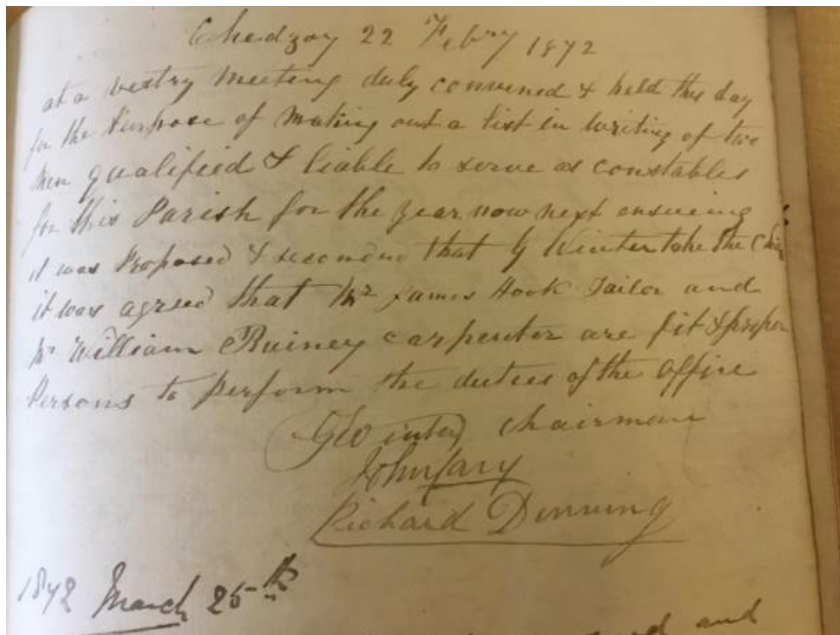 Chedzoy 22 Febry 1872
at a vestry meeting duly convened & held this day
for the Purpose of Making out a list in writing of two
Men qualified & liable to serve as constables
for this Parish for the year now next ensuing
it was Proposed & seconded that G Winter take the Chair
it was agreed that Mr James Hook Tailor and
Mr William Rainey carpenter are fit & proper
Persons to perform the duties of the office
G Winter Chairman
John Cary
Richard Denning
1872 March 25th
and